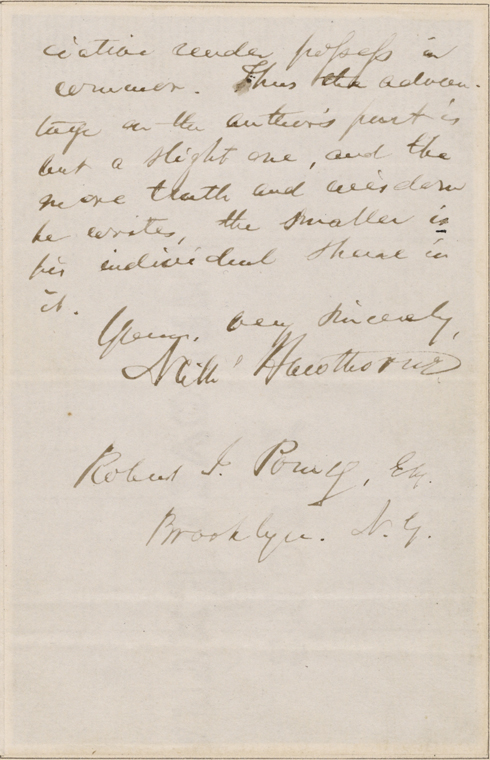 ciative reader possess in
common. Thus the advan-
tage on the author's part is
but a slight one, and the
more truth and wisdom
he writes, the smaller is
his individual share in
it.
Yours, very sincerely,
Nathl Hawthorne
Robert J. , Esq.
Brooklyn. N.Y.